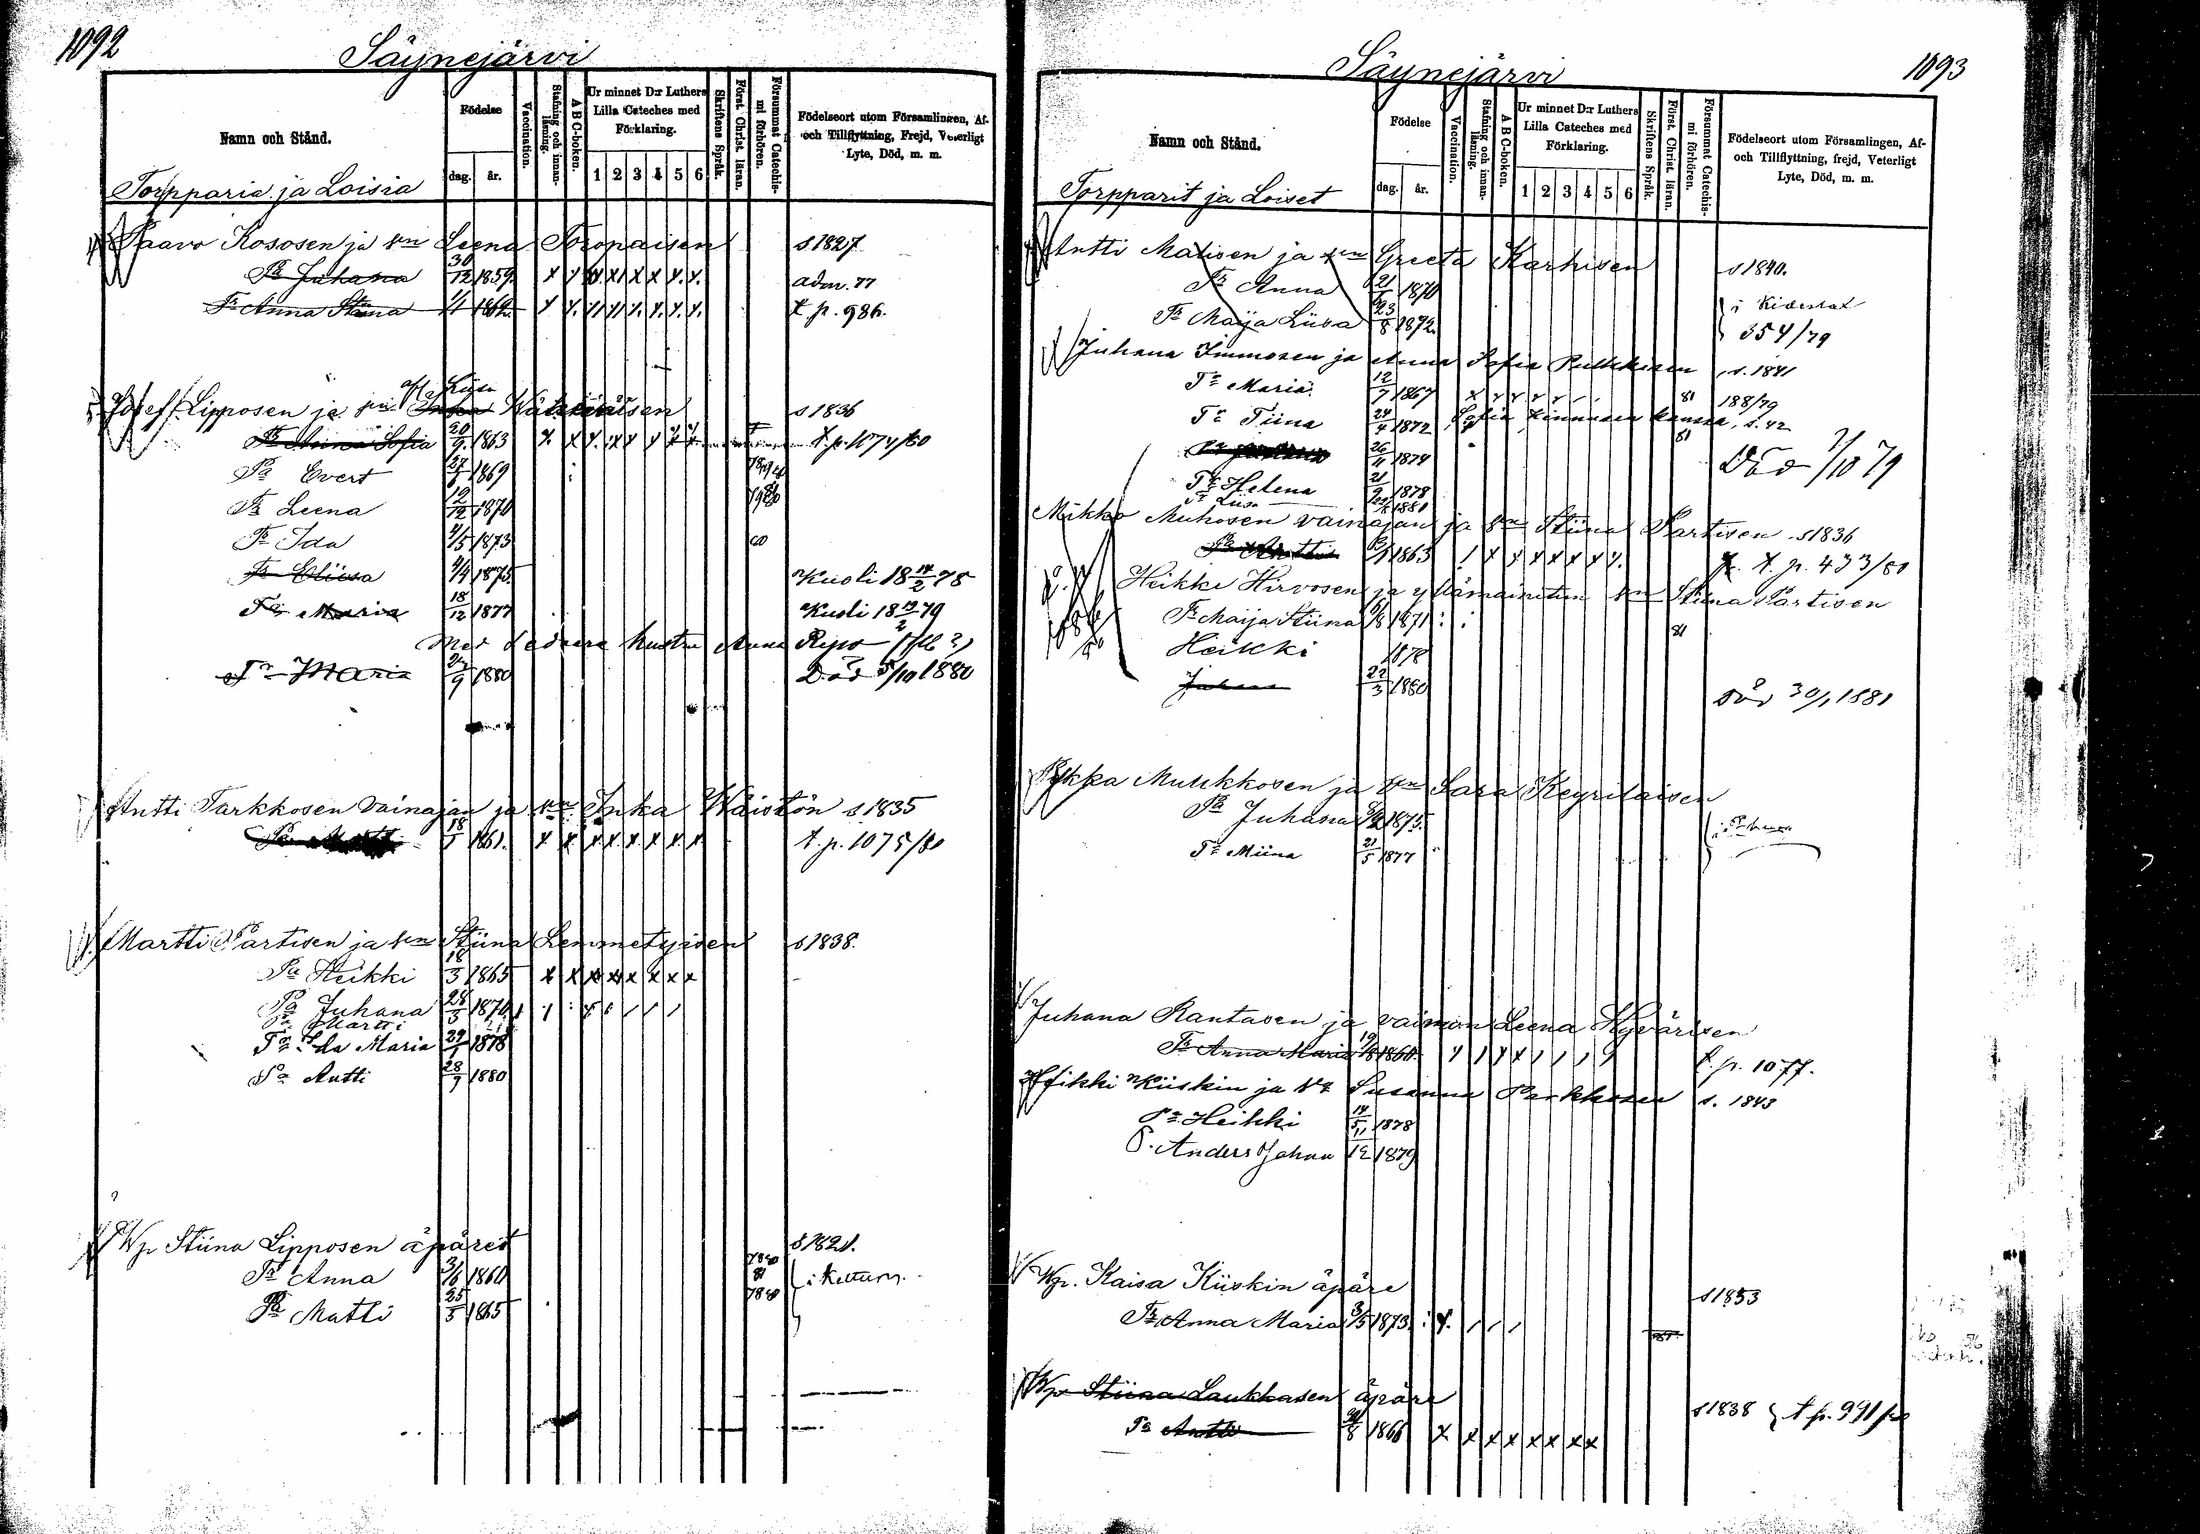 1092
Säynejärvi
Namn och Stånd.
Födelse
dag.
år.
Vaccination.
Stafning och innan-läsning.
A B C-boken.
Ur minnet D:r Luthers Lilla Cateches med Förklaring.
1 2 3 4 5 6
Skriftens Språk.
Först. Christ. läran.
Försummat Catechis-mi förhören.
Födelseort utom Församlingen, Af-
och Tillflyttning, Frejd, Veterligt
Lyte, Död, m. m.
Torpparia ja Loisia
Paavo Kososen ja vn Leena Toropaisen s 1827
Pa Juhana 30/12 1859 adm. 77
Tr Anna Stiina 1862 t. p. 986.
Josef Lipposen ja vn Liisa s 1836
Tr Anna Sofia 20/9 1863 t. p. 1074/80
Pa Evert 1869
Tr Leena 19/12 1870
Tr Ida 1873 80
Tr Eliisa 1875 Kuoli 18 14/2 78
Tr Maria 18/12 1877 Kuoli 18 19/2 79
Med hustru Anna
Tr Maria 1880 Död 5/10 1880
Antti Tarkkosen vainajan ja vn Inka Wäistön s 1835
1861. t. p. 1075/80
Martti Partisen ja vn Stiina Lemmetyisen s 1838.
Pa Heikki 18/3 1865
Pa Juhana 28/3 1870
Pa Martti
Tr Ida Maria 29/1 1878
Pa Antti 28/9 1880
Wp Stiina Lipposen äpäret
Tr Anna 1860 81
Pa Matti 25/3 1865
1093
Säynejärvi
Namn och Stånd.
Födelse
dag.
år.
Vaccination.
Stafning och innan-läsning.
A B C-boken.
Ur minnet D:r Luthers Lilla Cateches med Förklaring.
1 2 3 4 5 6
Skriftens Språk.
Först. Christ. läran.
Försummat Catechis-mi förhören.
Födelseort utom Församlingen, Af-
och Tillflyttning, frejd, Veterligt
Lyte, Död, m. m.
Torpparit ja Loiset
Antti Matisen ja vn Greeta Karhisen s 1840.
Tr Anna 1870
Tr Maija Liisa 23/8 1872. 354/79
Juhana Immosen ja Anna Sofia Pulkkinen s. 1841
Tr Maria 12/7 1867 81 188/79
Tr Tiina 24/4 1872 Sofia Kinnusen kanssa, s. 42
26/11 1874 81 Död 1/10 79
Tr Helena 21/9 1878
Tr Liisa 1881
Mikko Muhosen vainajan ja vn Stiina Partisen s 1836
Pa Antti 1863 t. p. 433/80
Heikki Hirvosen ja ylämainitun vn Stiina Partisen
Tr Maija Stiina 1871 81
Heikki 1878
Juhana 22/3 1880 död 30/1 1881
Pekka Mulikkosen ja vn Sara Keyriläisen
Pa Juhana 1875.
Tr Miina 21/5 1877
Juhana Rantasen ja vaimon Leena Hyvärisen
Tr Anna Maria 1860. t. p. 1077.
Heikki Kiiskin ja vn Susanna Parkkosen s. 1843
Pa Heikki 1878
P. Anders Johan 1879
Wp. Kaisa Kiiskin äpäre s 1853
Tr Anna Maria 3/5 1873
Wp Stiina Laukkasen äpäre s 1838 t p. 991
Pa Antti 1866